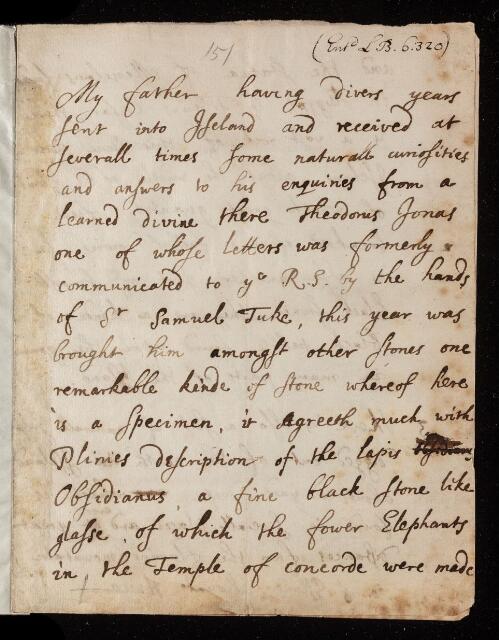 (Entd L.B. 6.320)
151
My father having divers years
sent into Iseland and received at
severall times some naturall curiosities
and answers to his enquiries from a
learned divine there Theodorus Jonas
one of whose letters was formerly
communicated to ye R.S. by the hands
of Sr Samuel Tuke, this year was
brought him amongst other stones one
remarkable kinde of stone whereof here
is a specimen, it Agreeth much with
Plinies description of the lapis
Obsidianus a fine black stone like
glasse, of which the fower Elephants
in the Temple of concorde were made